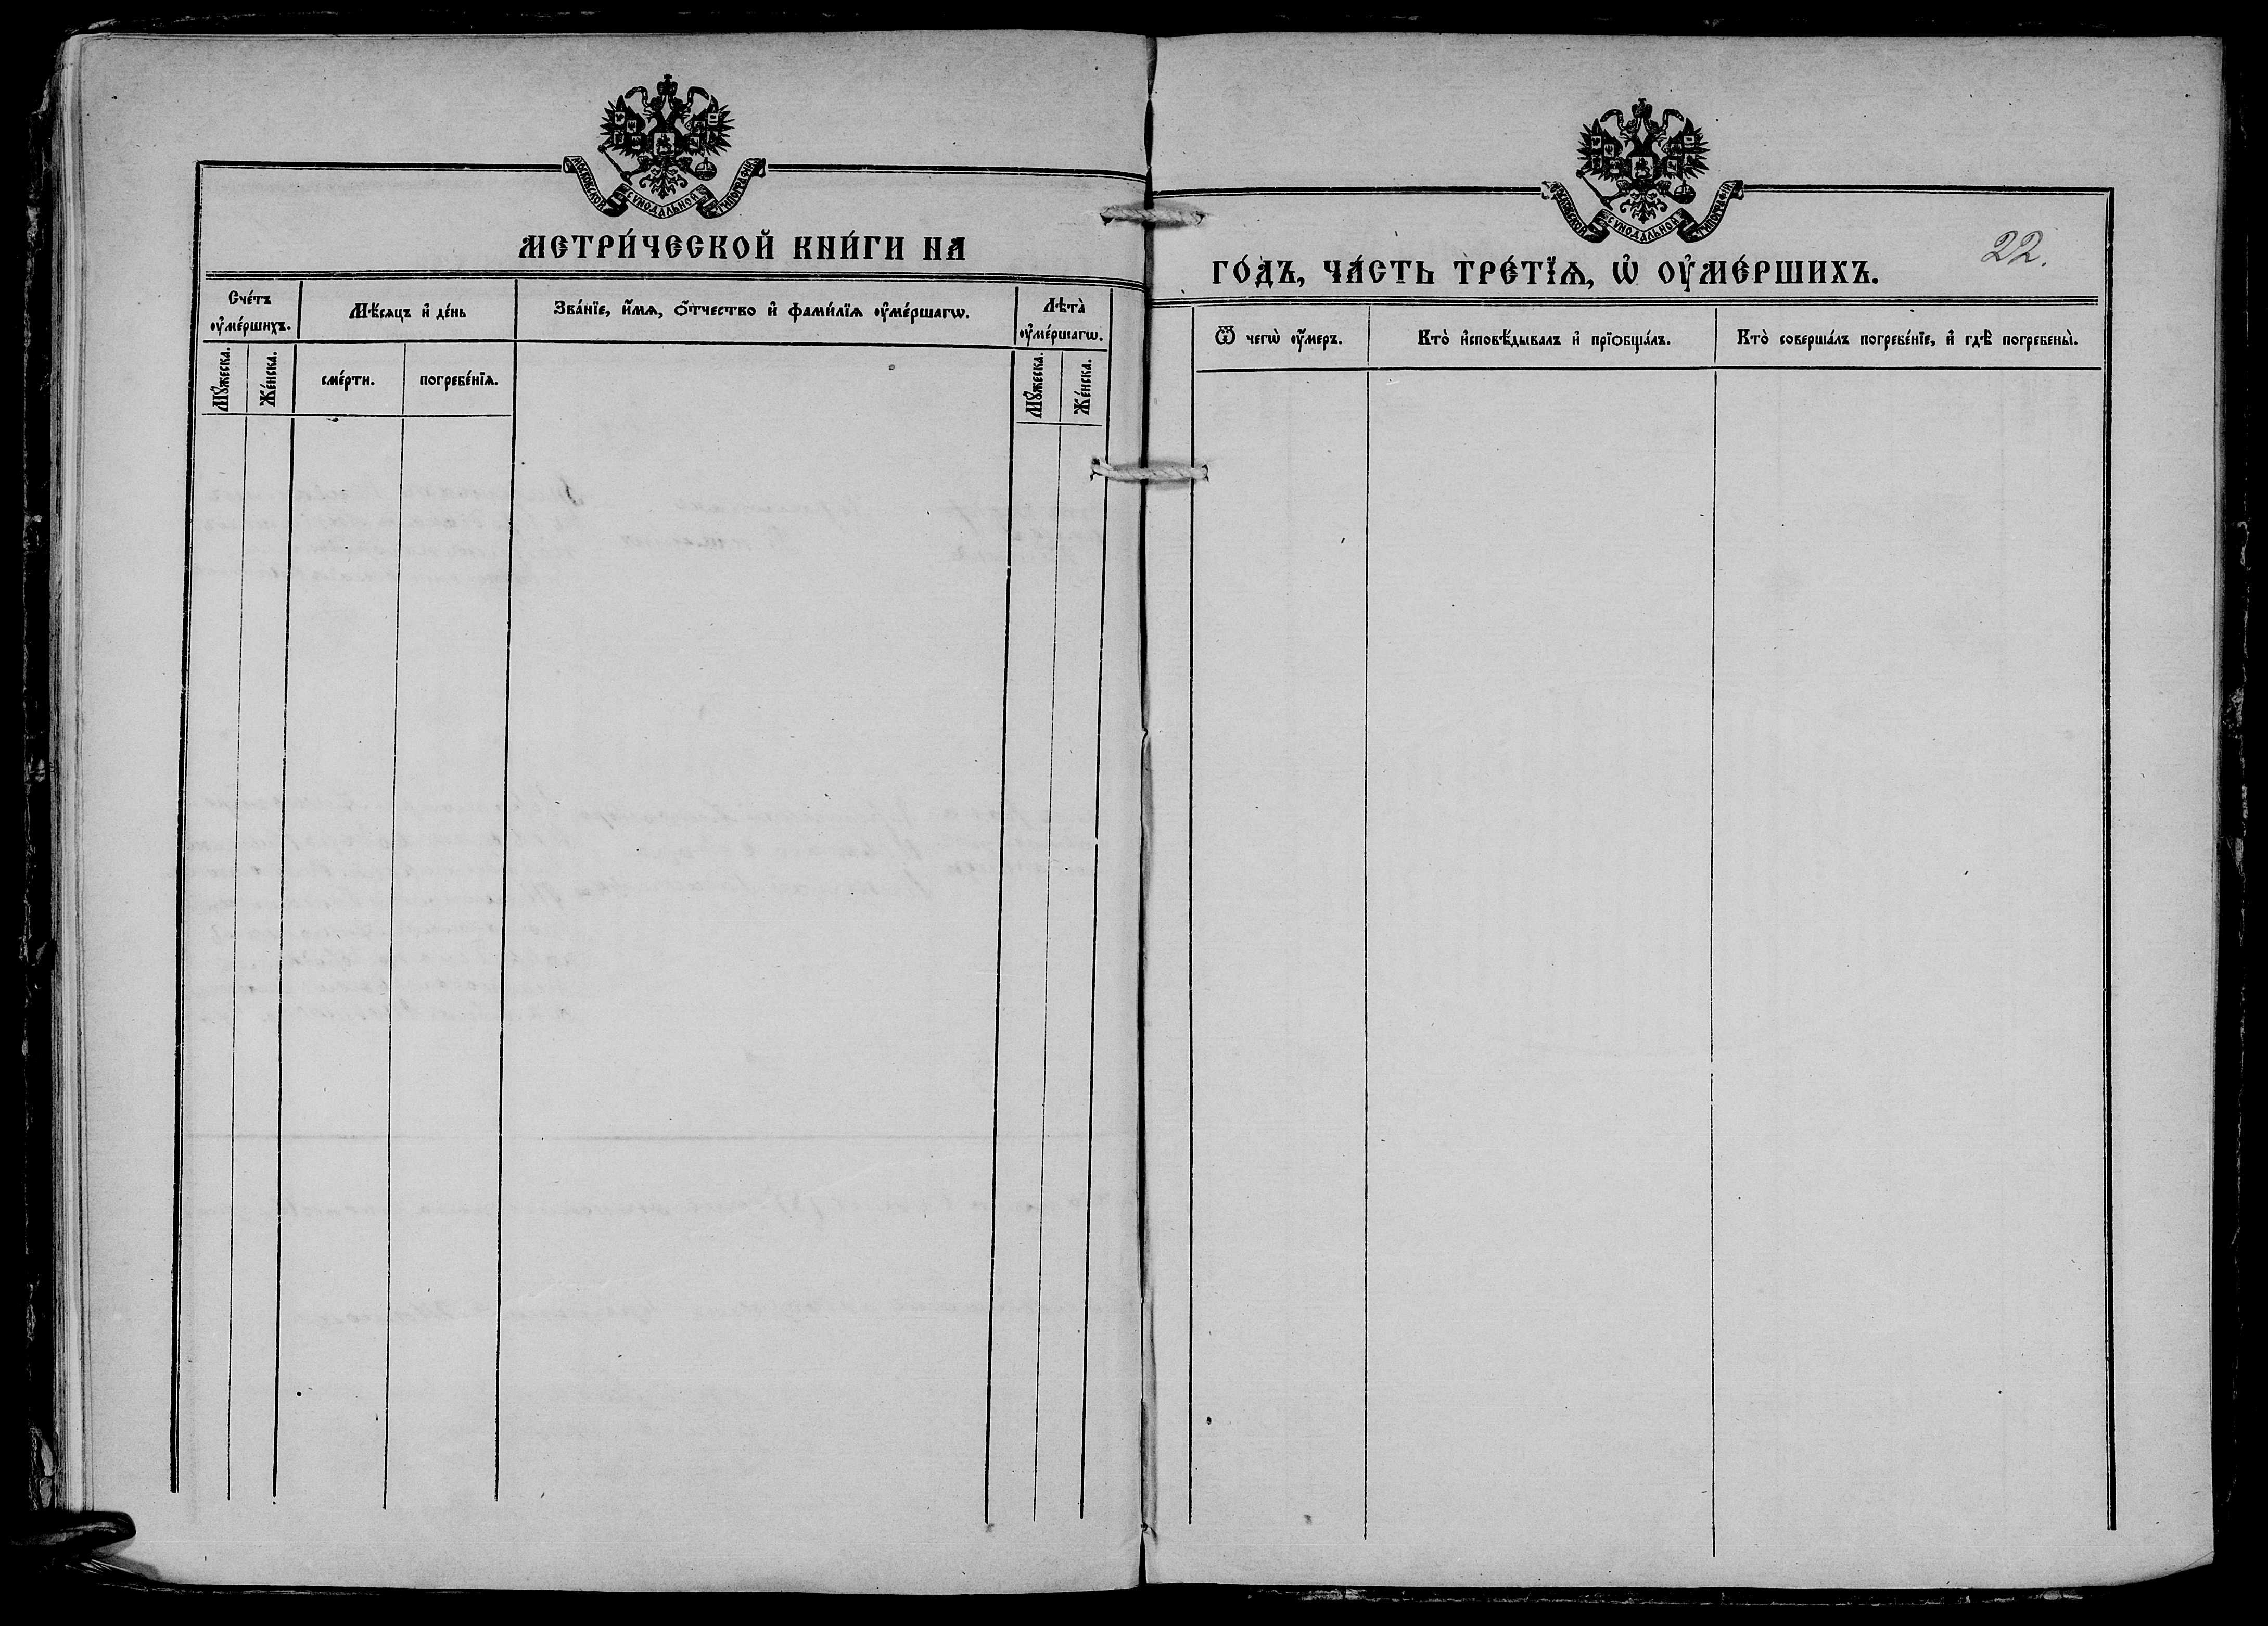 МОСКОВСКОЙ СѴНОДАЛЬНОЙ ТИПОГРАФІИ
МЕТРИ́ЧЕСКОЙ КНИ́ГИ НА
Сче́тъ
ᲂу҆ме́ршихъ.
Мѣ́сяцъ и҆ де́нь
Зва́нїе, и҆́мѧ, ѻ҆́тчество и҆ фами́лїѧ ᲂу҆ме́ршагѡ.
Лѣ́та̀
ᲂу҆ме́ршагѡ.
Мꙋ́жеска.
Же́нска.
сме́рти.
погребе́нїѧ.
Мꙋ́жеска.
Же́нска.
МОСКОВСКОЙ СѴНОДАЛЬНОЙ ТИПОГРАФІИ
22.
ГО́ДЪ, ЧА́СТЬ ТРЕ́ТЇѦ, Ѡ҆ ОУ҆МЕ́РШИХЪ.
Ѿ чегѡ̀ ᲂу҆́меръ.
Кто̀ и҆сповѣ́дывалъ и҆ прїѻбща́лъ.
Кто̀ соверша́лъ погребе́нїе, и҆ гдѣ̀ погребены̀.